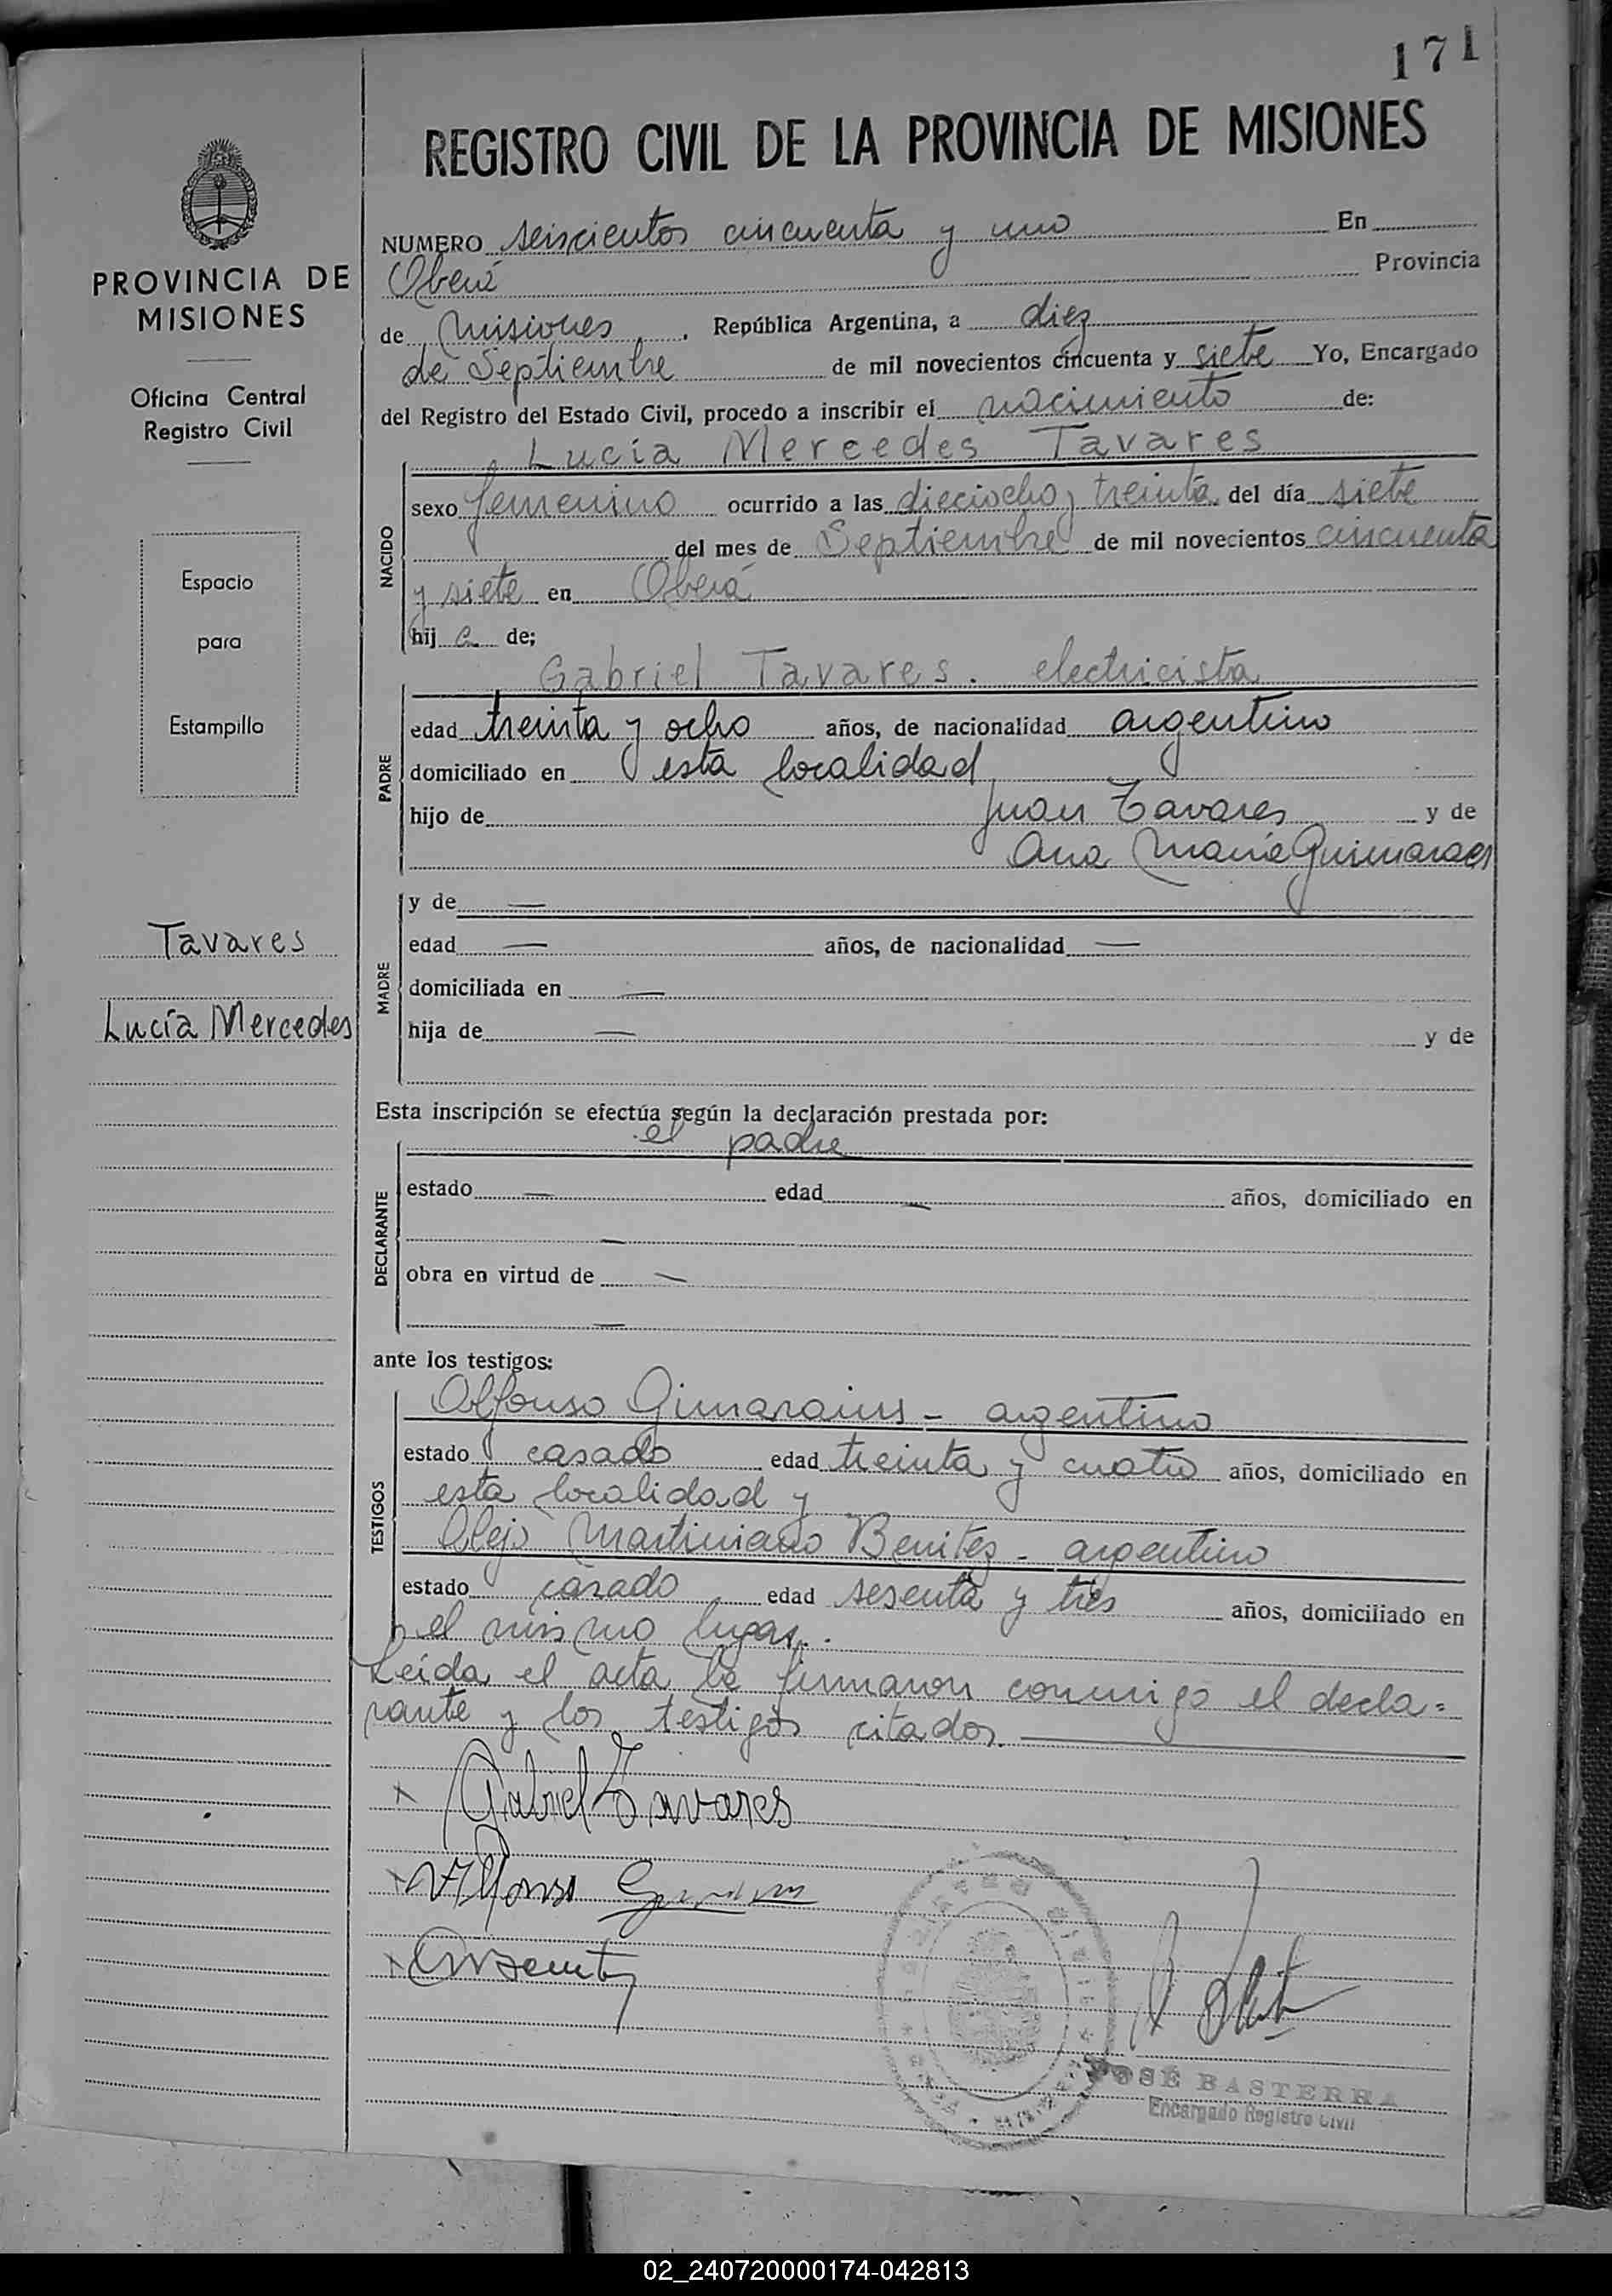 171
REGISTRO CIVIL DE LA PROVINCIA DE MISIONES
PROVINCIA DE
MISIONES
Oficina Central
Registro Civil
Espacio
para
Estampillo
Tavares
Lucía Mercedes
NUMERO seiscientos cincuenta y uno En
Oberá Provincia
de Misiones, República Argentina, a diez
de Septiembre de mil novecientos cincuenta y siete Yo, Encargado
del Registro del Estado Civil, procedo a inscribir el nacimiento de:
Lucía Mercedes Tavares
NACIDO
sexo femenino ocurrido a las dieciocho y treinta del día siete
del mes de Septiembre de mil novecientos cincuenta
y siete en Oberá
hij a de;
Gabriel Tavares. electricista
PADRE
edad treinta y ocho años, de nacionalidad argentino
domiciliado en esta localidad
hijo de Juan Tavares y de
Ana María Guimaraes
MADRE
y de —
edad — años, de nacionalidad —
domiciliada en —
hija de — y de
Esta inscripción se efectúa según la declaración prestada por:
el padre
DECLARANTE
estado — edad — años, domiciliado en
—
obra en virtud de —
—
ante los testigos:
TESTIGOS
Alfonso Gimaraius - argentino
estado casado edad treinta y cuatro años, domiciliado en
esta localidad y
Alejo Martiniano Benitez - argentino
estado casado edad sesenta y tres años, domiciliado en
el mismo lugar.
Leída el acta la firmaron conmigo el decla=
rante y los testigos citados.
Gabriel Tavares
Alfonso
JOSÉ BASTERRA
Encargado Registro Civil
02_240720000174-042813